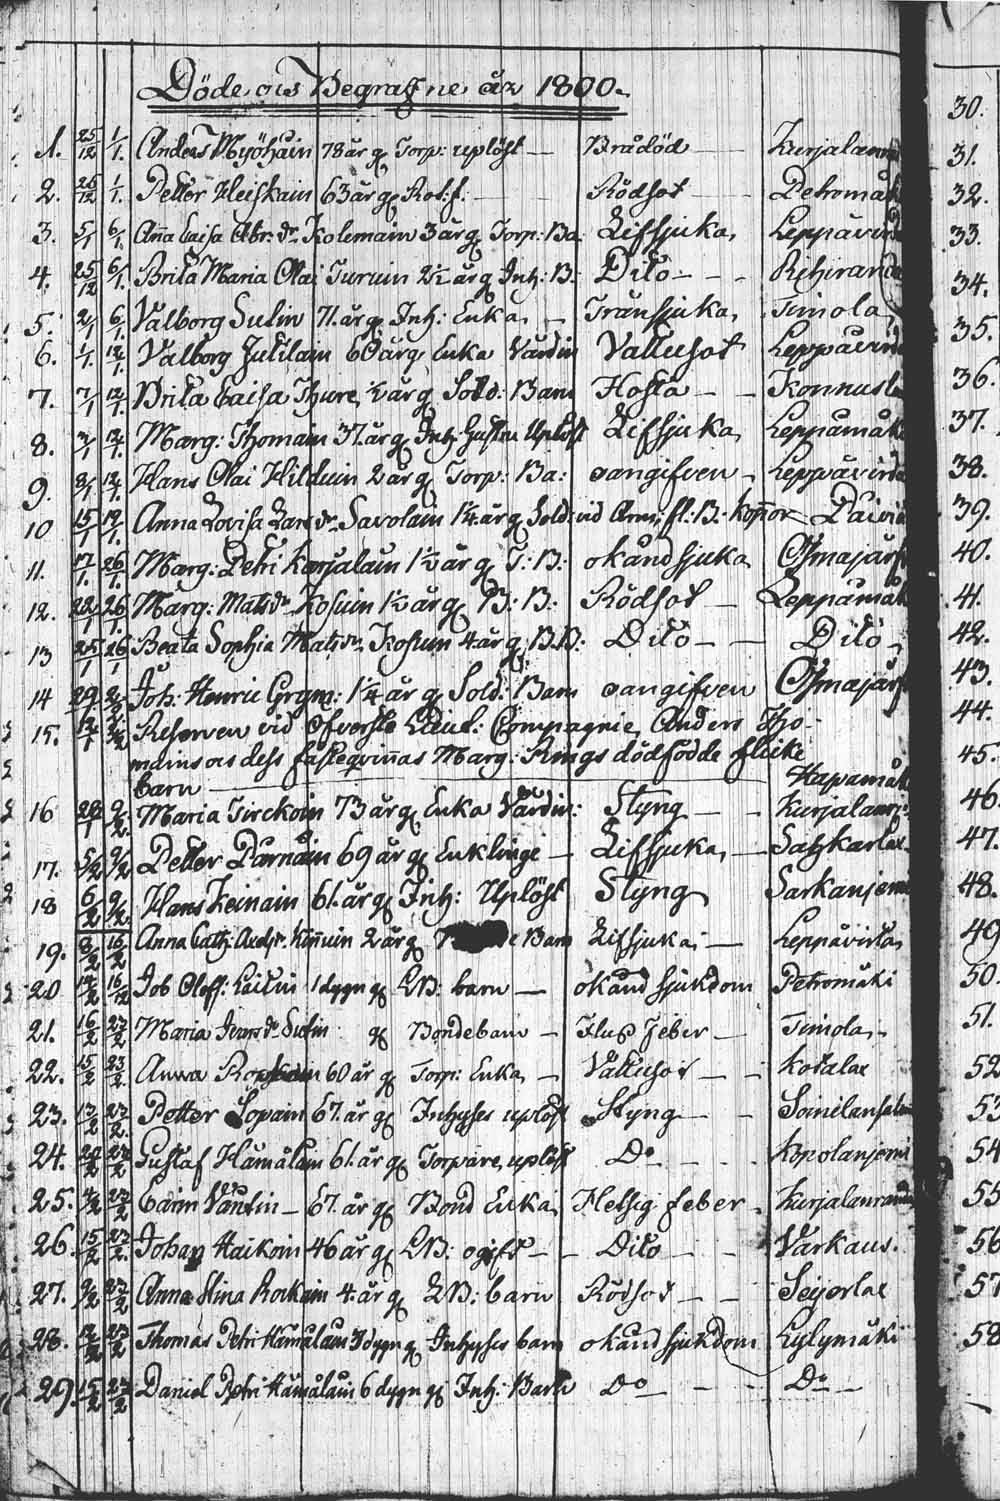 Döde och Begrafne år 1800.
1. 25/12 1/1. Anders Myöhäin 78 år g. Torp: uplöst — Brådöd — Kurjalanra
2. 26/12 1/1. Petter Heiskain 63 år g. Rot:f. — Rödsot — Petromäk
3. 5/1 6/1 Aña Caisa Abr: dr Kolemain 3 år g. Torp: Ba: Lifsjuka, Leppävird
4. 25/12 6/1 Brita Maria Olai Turuin 2½ år g. Inh: B: Dito — Riihiranda
5. 2/1 6/1. Valborg Sutin 71. år g. Inh: Enka, — Trånsjuka, Timola,
6. 1/1 12/1. Valborg Jutilain 60 år g. Enka Värdin Vattusot Leppävird
7. 7/1 12/1. Brita Caisa Thure ½ år g. Sold: Barn Hosta — Konnusla
8. 3/1 12/1. Marg: Thomain 37. år g. Inh: Hustru Uplöst Lifsjuka, Leppämäk
9. 8/1 12/1. Hans Olai Hilduin 2 år g. Torp: Ba: oangifven — Leppävirda
10 15/1 19/1. Anna Lovisa Lars dr Savolain 1¼ år g. Sold: vid Arm: fl: B: Koppor Paivi
11. 17/1. 26/1. Marg: Petri Karjalain 1½ år g. T: B: okänd sjuka Osmajärf
12. 22/1 26/1. Marg: Mats dr Kosuin 1½ år g. B: B: Rödsot — Leppämäk
13 25/1 26/1 Beata Sophia Mats dr Kosuin 4 år g. B.B: Dito — Dito,
14 29/1 2/2 Joh: Henric Grym: 1¼ år g. Sold: Barn oangifven Osmajärf
15. 2/2 Reserven vid Öfverste Lieut: Compagnie, Anders Tho-
mains och dess fästeqviñas Marg: Rings dödfödde flicke
barn — Hapamäk
16 28/1 9/2. Maria Tirckoin 73 år g. Enka Värdin: Styng — Kurjalanr
17. 5/2 9/2 Petter Pärnäin 69 år g. Enklinge — Lifsjuka, — Satzkarlax
18 6/2 9/2. Hans Leinain 61. år g. Inh: Uplöst Styng Sarkanjemi
19. 8/2 16/2 Anna Cath: Axels dr Kiñuin 2 år g. Barn Lifsjuka; — Leppävirta,
20 14/2 16/12 Job Oloff: Laitin 1 dygn g. LB: barn — okänd sjukdom Petromäki
21. 16/2 23/2 Maria Ivars dr Sutin g. Bondebarn — Fluss Feber — Timola, -
22. 15/2 23/2. Anna 60 år g. Torp: Enka, — Vattusot — Kotalax
23. 13/2 23/2. Petter Sopain 67. år g. Inhyses uplöst Styng — Soinilansalmi
24. 20/2 23/2 Gustaf Hämäläin 61. år g. Torpare, uplöst Do — Kopolanjemi
25. 14/2 23/2 Carin Väntin — 67. år g. Bond Enka, Hetsig feber — Kurjalanranda
26. 15/2 23/2. Johan Haikoin 46 år g. LB: ogift — Dito — Varkaus.
27. 9/2 23/2 Anna Stina Rockain 4. år g. LB: barn Rödsot — Seijerlax
28. 12/2 23/2 Thomas Petri Hämäläin 3 dygn g. Inhyses barn okänd sjukdom Lylymäki
29. 15/2 23/2 Daniel Petri Hämäläin 6 dygn g. Inh: Barn Do — Do —
30.
31.
32.
33.
34.
35.
36.
37.
38.
39.
40.
41.
42.
43.
44.
45.
46.
47.
48.
49
50.
51.
52
53
54
55
56
57
58